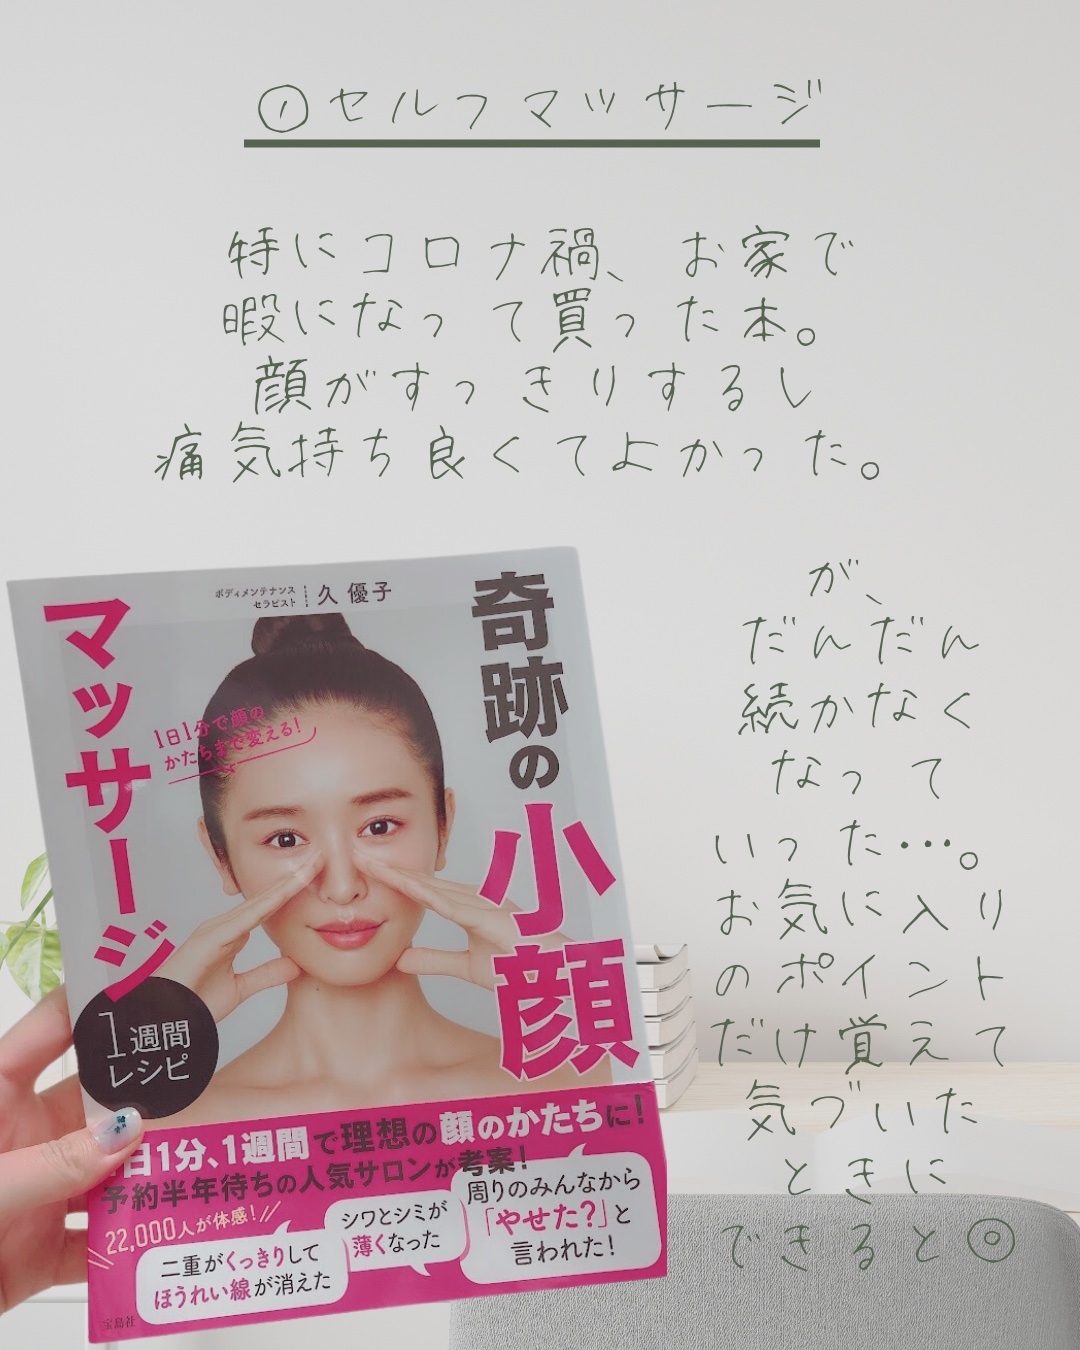 ①セルフマッサージ
特にコロナ禍、お家で
暇になって買った本。
顔がすっきりするし
痛気持ち良くてよかった。
が、
だんだん
続かなく
なって
いった…。
お気に入り
のポイント
だけ覚えて
気づいた
ときに
できると◎
ボディメンテナンス
セラピスト
久 優子
奇跡の小顔
マッサージ
1日1分で顔の
かたちまで変える!
1週間
レシピ
日1分、1週間で理想の顔のかたちに!
予約半年待ちの人気サロンが考案!
22,000人が体感!
二重がくっきりして
ほうれい線が消えた
シワとシミが
薄くなった
周りのみんなから
「やせた?」と
言われた!
宝島社